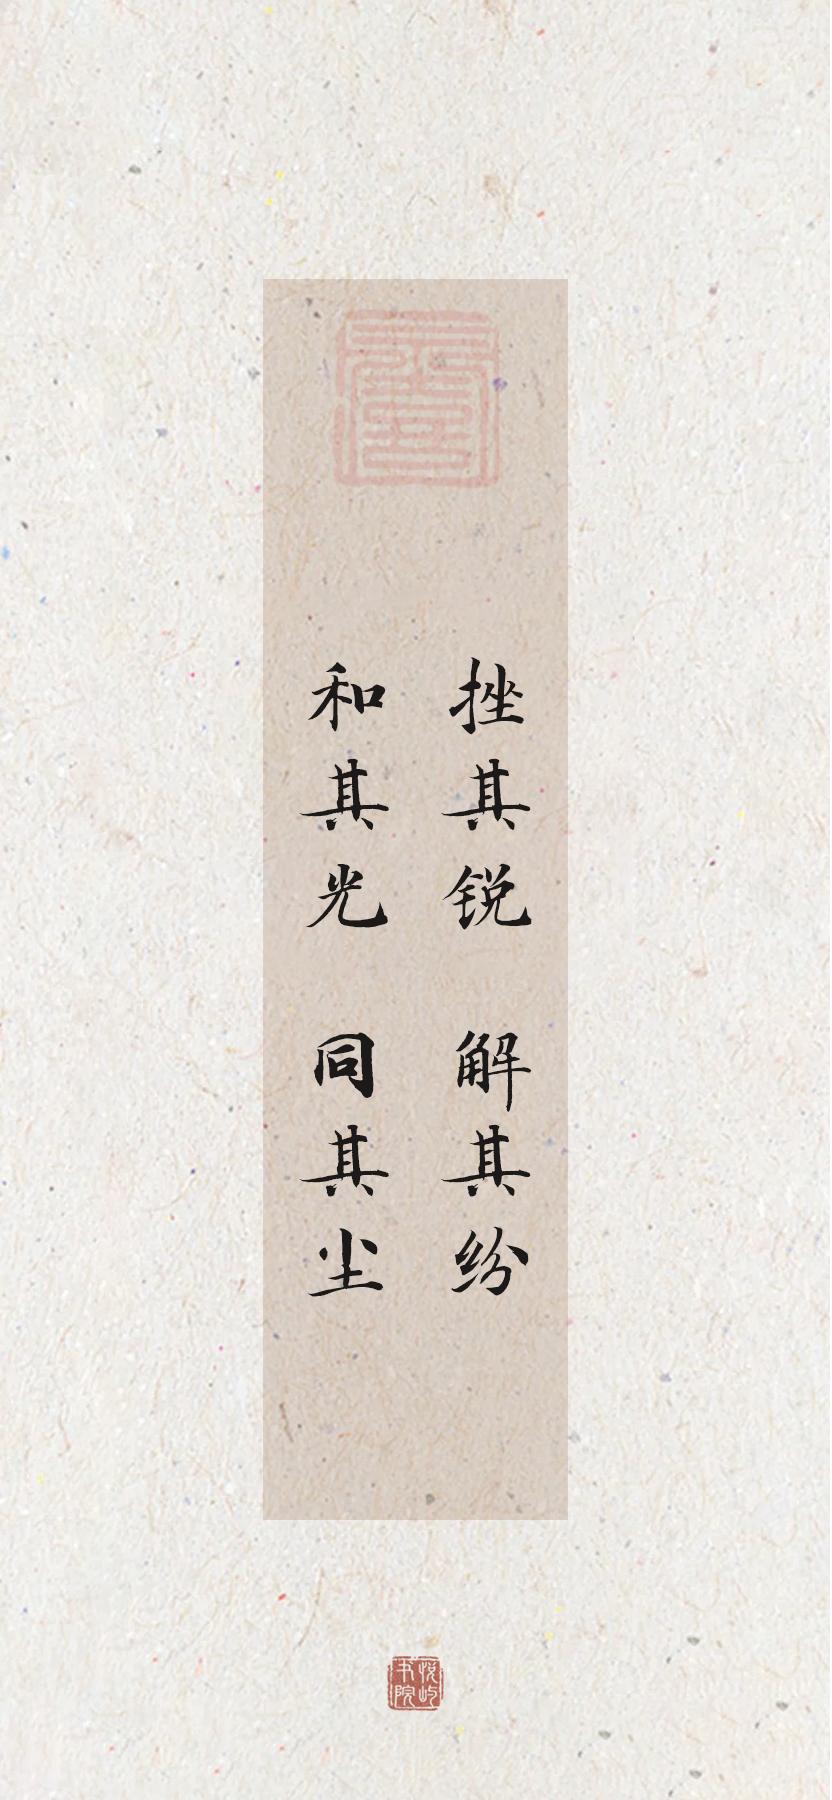 挫其锐 解其纷
和其光 同其尘
悦屿
书院